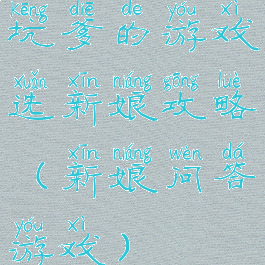 kēng diē de yóu xì
坑爹的游戏
xuǎn xīn niáng gōng lüè
选新娘攻略
xīn niáng wèn dá
(新娘问答
yóu xì
游戏)